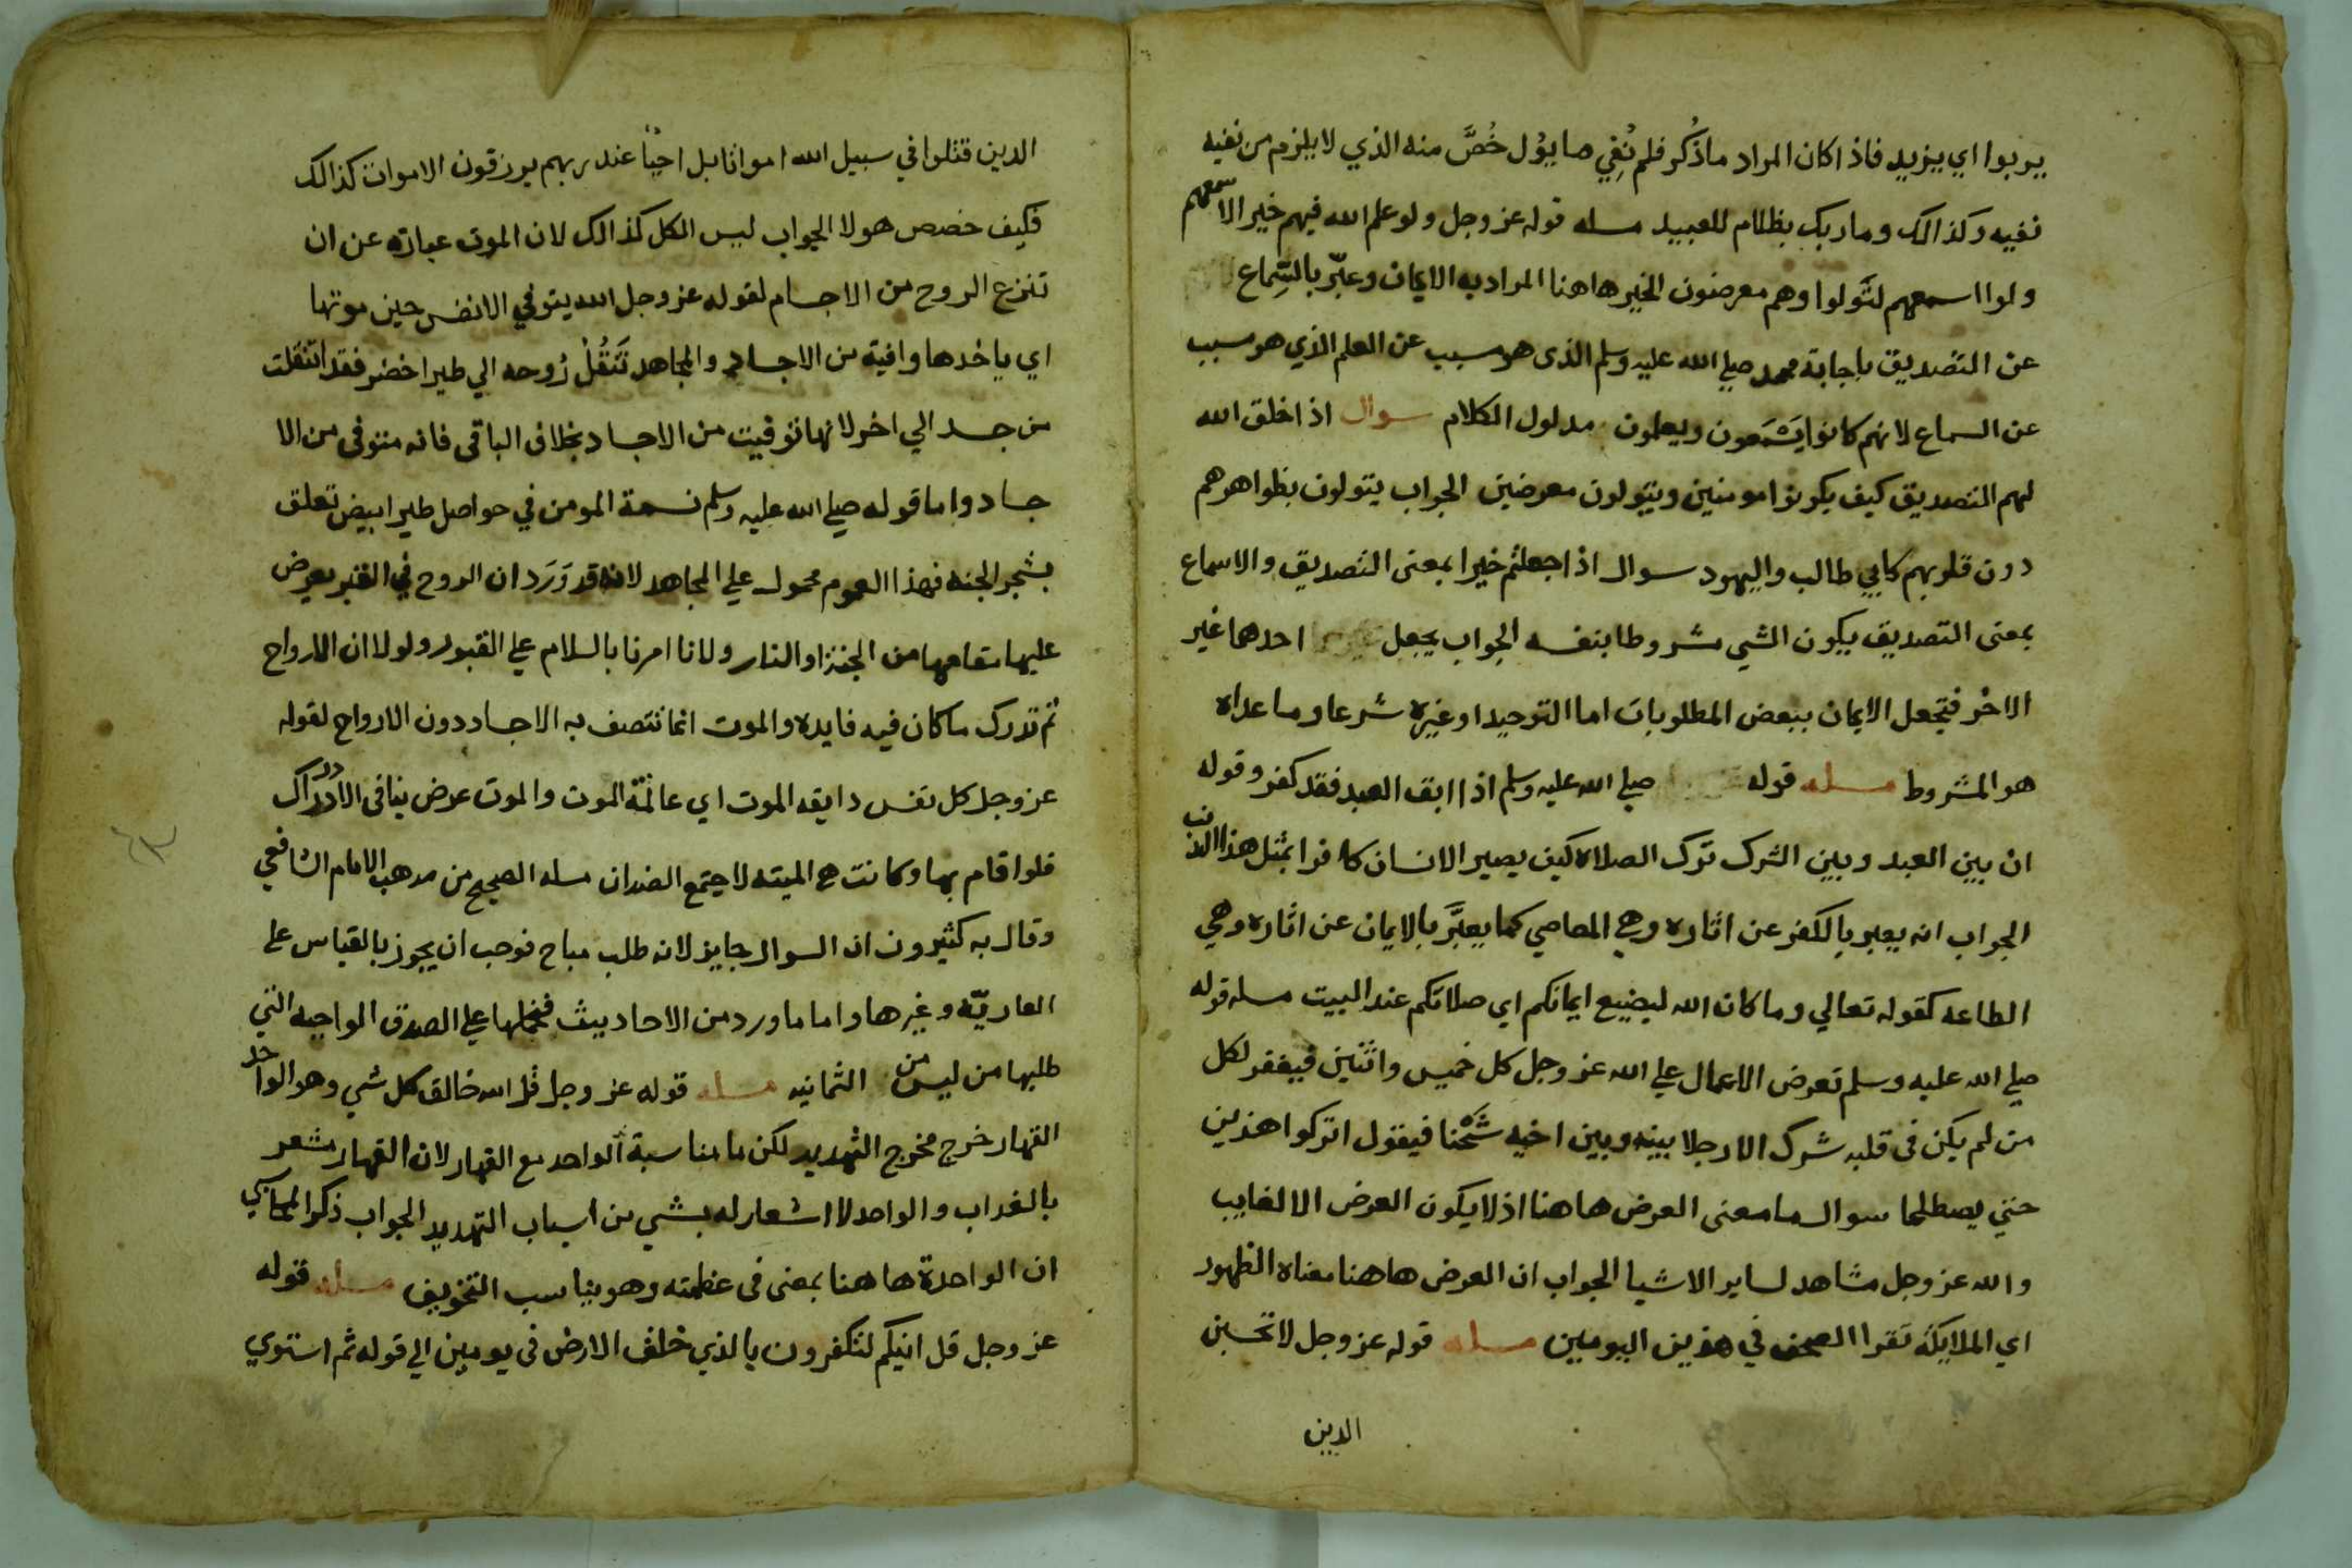 يربوا اي يزيد فاذا كان المراد ما ذُكر فلم نُفِي ما يؤل خُصَّ منه الذي لا يلزم من نفيه
نفيه وكذالك وما ربك بظلام للعبيد مسله قوله عز وجل ولو علم الله فيهم خيرا لاسمعهم
ولوا اسمعهم لتَولوا وهم معرضون الخير هاهنا المراد به الايمان وعبّر بالسِماع
عن التصديق باجابة محمد صلي الله عليه وسلم الذى هو مسبب عن العلم الذي هو مسبب
عن السماع لانهم كانوا يَسْمَعون ويعلمون مدلول الكلام سوال اذا خلق الله
لهم التصديق كيف يكونوا مومنين ويتولون معرضين الجواب يتولون بظواهرهم
دون قلوبهم كابي طالب واليهود سوال اذا جعلتم خيرا بمعنى التصديق والاسماع
بمعنى التصديق يكون الشي مشروطا بنفسه الجواب يجعل احدهما غير
الاخر فتجعل الايمان ببعض المطلوبات اما التوحيد او غيره شرعا وما عداه
هو المشروط مسله قوله صلي الله عليه وسلم اذا ابق العبد فقد كفر وقوله
ان بين العبد وبين الشرك ترك الصلاه كيف يصير الانسان كافرا بمثل هذا الذنب
الجواب انه يعبر بالكفر عن اثاره وهي المعاصي كما يعبَّر بالايمان عن اثاره وهي
الطاعه كقوله تعالي وما كان الله ليضيع ايمانكم اي صلاتكم عند البيت مسله قوله
صلي الله عليه وسلم تعرض الاعمال علي الله عز وجل كل خميس واثنين فيغفر لكل
من لم يكن فى قلبه شرك الا رجلا بينه وبين اخيه شَحْنا فيقول اتركوا هذين
حتي يصطلحا سوال ما معنى العرض هاهنا اذ لا يكون العرض الا لغايب
والله عز وجل مشاهد لساير الاشيا الجواب ان العرض هاهنا معناه الظهور
اي الملايكة تقرا الصحف في هذين اليومين مسله قوله عز وجل لا تحسبن
الدين
الدين قتلوا في سبيل الله امواتا بل احيأ عند ربهم يرزقون الاموات كذالك
فكيف خصص هولا الجواب ليس الكل كذالك لان الموت عبارة عن ان
تنزع الروح من الاجسام لقوله عز وجل الله يتوفي الانفس حين موتها
اي ياخدها وافية من الاجساد والمجاهد تَنتقُلُ رُوحه الي طير اخضر فقد انتقلت
من جسد الي اخر لانها توفيت من الاجساد بخلاف الباقى فانه متوفى من الا
جساد واما قوله صلي الله عليه وسلم نسمة المومن في حواصل طير ابيض تعلق
بشجر الجنه فهذا العموم محمول علي المجاهد لانه قد وَرَد ان الروح في القبر يعرض
عليها مقامها من الجنة او النار ولانا امرنا بالسلام علي القبور ولولا ان الارواح
ثم تدرك ما كان فيه فايده والموت انما تتصف به الاجساد دون الارواح لقوله
عز وجل كل نفس دايقه الموت اي عالمة الموت والموت عرض ينافى الادراك
فلوا قام بها وكانت هي الميته لاجتمع الضدان مسله الصحيح من مدهب الامام الشافعي
وقال به كثيرون ان السوال جايز لانه طلب مباح فوجب ان يجوز بالقياس على
العاريّة وغيرها واما ما ورد من الاحاديث فيحملها علي الصدق الواجبه التي
طلبها من ليس من الثمانيه مسله قوله عز وجل قل الله خالق كل شي وهو الواحد
القهار خرج مخرج التهديد لكن ما مناسبة الواحد مع القهار لان القهار مشعر
بالعداب والواحد لا اشعار له بشي من اسباب التهديد الجواب ذكر المحاسبي
ان الواحدة هاهنا بمعنى فى عظمته وهو يناسب التخويف مسله قوله
عز وجل قل انيكم لتكفرون بالذي خلق الارض فى يومين الي قوله ثم استوي